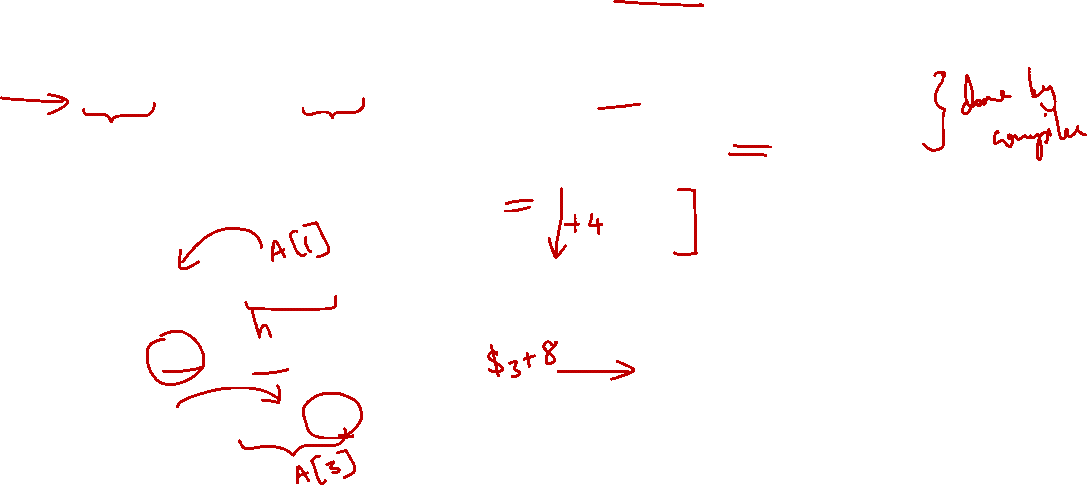 Done by
compiler
= +4
A[1]
h
$3+8
A[3]